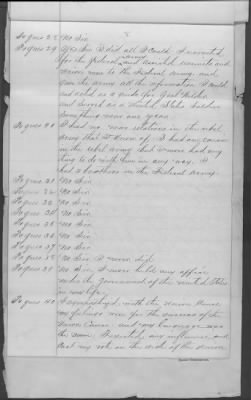 To ques 28 No Sir.
To ques 29 Yes Sir I did all I could. I recruited
for the Federal army and assisted
men to the Federal army, and
gave the army all the information I could
and acted as a guide for Genl
and served as a United States Soldier
something near one year.
To ques 30 I had no near relations in the rebel
army that I know of. I had
in the rebel army but I never had any
thing to do with him in any way. I
had 2 brothers in the Federal Army.
To ques 31 No Sir.
To ques 32 No Sir.
To ques 33 No Sir.
To ques 34 No Sir.
To ques 35 No Sir.
To ques 36 No Sir.
To ques 37 No Sir.
To ques 38 No Sir I never did.
To ques 39 No Sir, I never held any office
under the Government of the United States
in my life.
To ques 40 I sympathized with the Union Cause
my feelings were for the success of the
Union Cause and my language was
the same. I exerted my influence and
cast my vote on the side of the Union